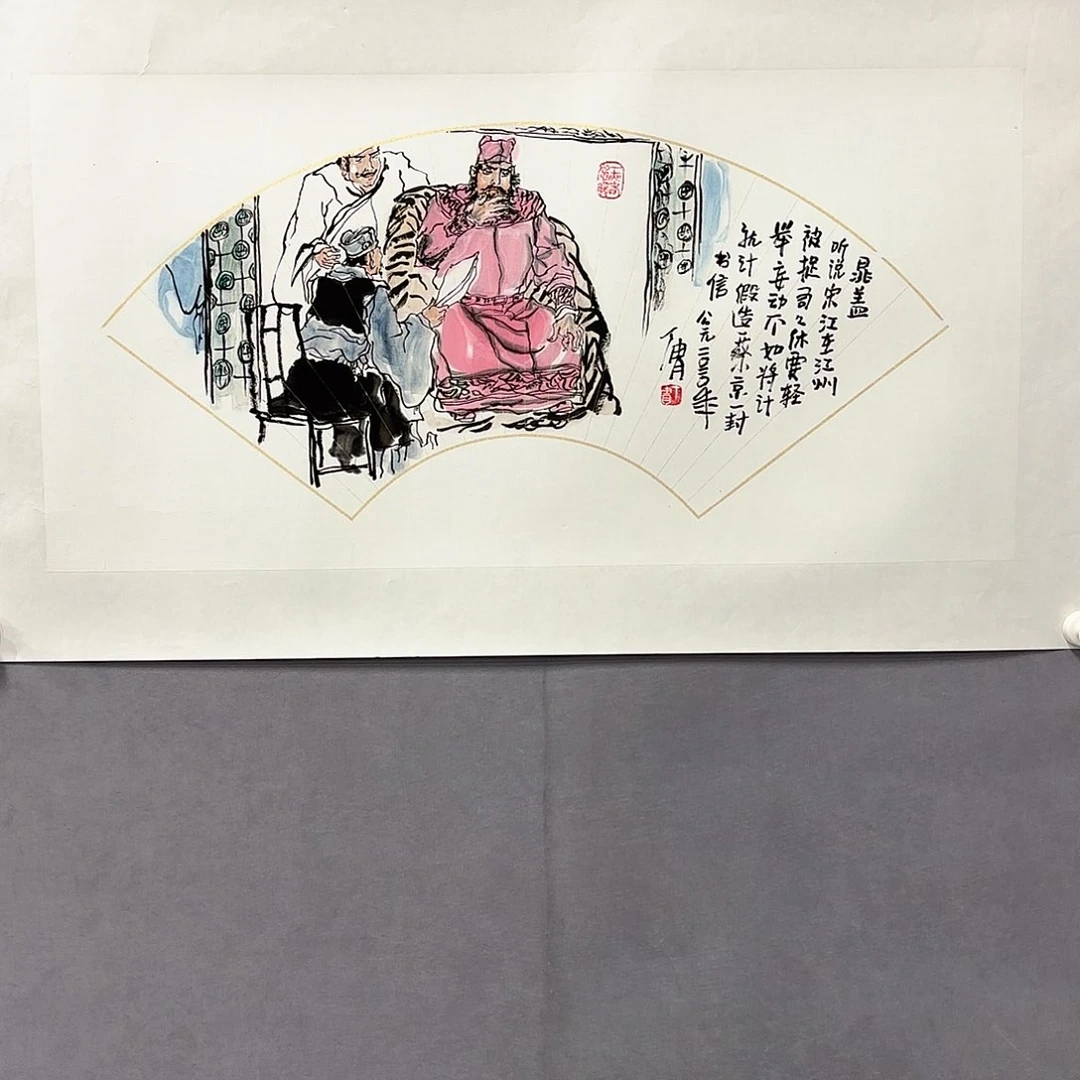 晁盖
听说宋江在江州
被捉休要轻
举妄动不如将计
就计假造蔡京一封
书信 公元二〇〇〇年